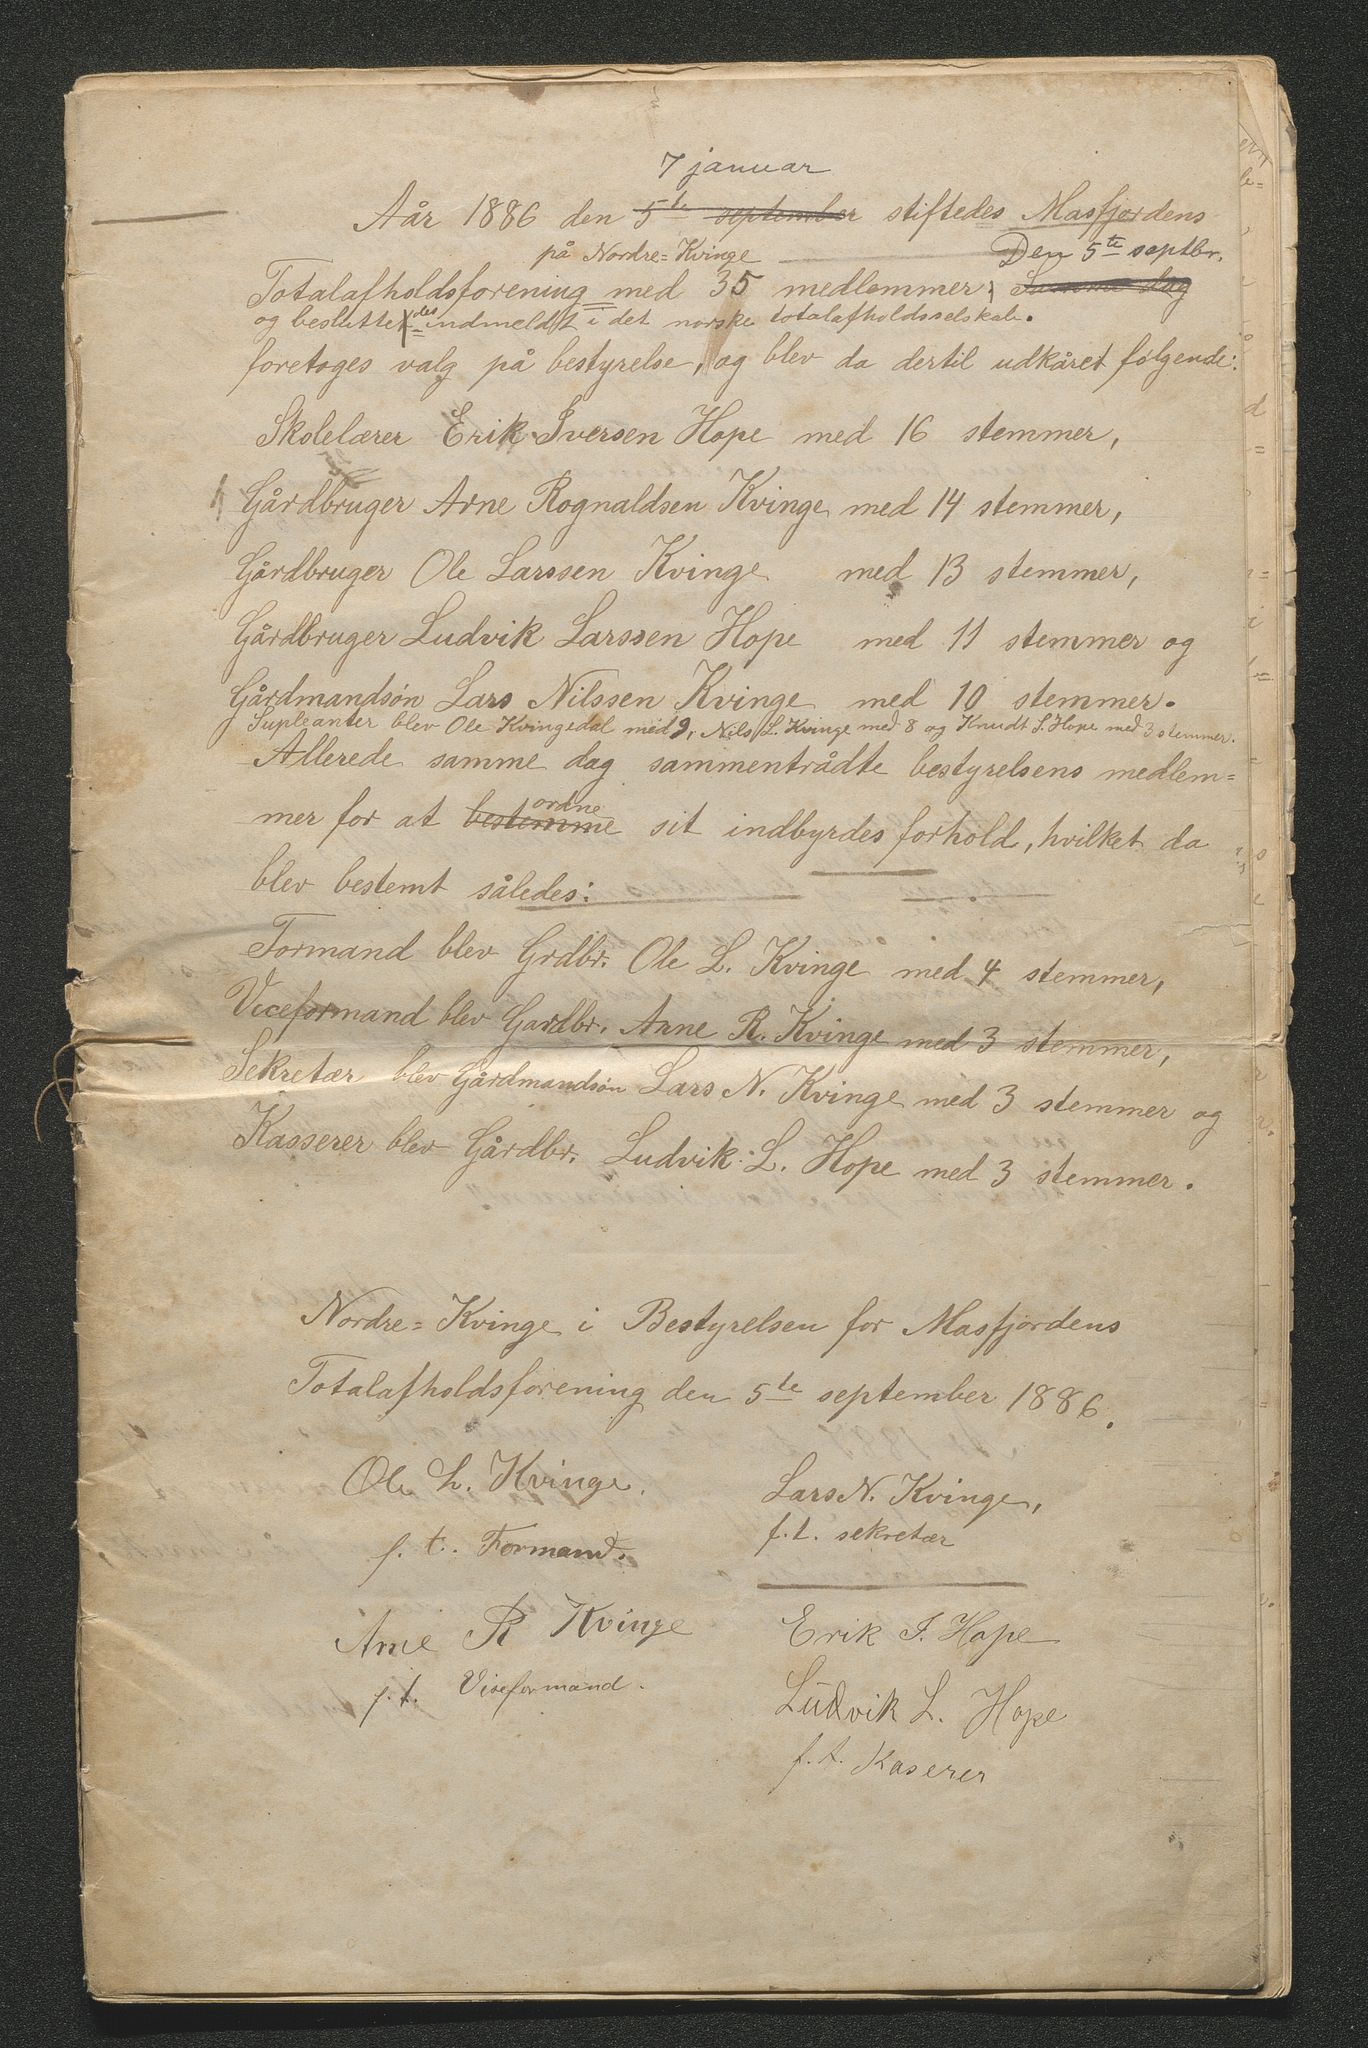 7 januar
Aår 1886 den 5te september stiftedes Masfjordens
på Nordre=Kvinge Den 5te septbr.
Totalafholdsforening med 35 medlemmer, Samme dag
og besluttedes indmeldt i det norske totalafholdsselskab.
foretoges valg på bestyrelse, og blev da dertil udkåret følgende:
Skolelærer Erik Iversen Hope med 16 stemmer,
Gårdbruger Arne Rognaldsen Kvinge med 14 stemmer,
Gårdbruger Ole Larssen Kvinge med 13 stemmer,
Gårdbruger Ludvik Larssen Hope med 11 stemmer og
Gårdmandsøn Lars Nilssen Kvinge med 10 stemmer.
Supleanter blev Ole Kvingedal med 9, Nils L. Kvinge med 8 og Knudt I. Hope med 3 stemmer.
Allerede samme dag sammentrådte bestyrelsens medlem=
ordne
mer for at bestemme sit indbyrdes forhold, hvilket da
blev bestemt således:
Formand blev Grdbr. Ole L. Kvinge med 4 stemmer,
Viceformand blev Gardbr. Arne R. Kvinge med 3 stemmer,
Sekretær blev Gårdmandsøn Lars N. Kvinge med 3 stemmer og
Kasserer blev Gårdbr. Ludvik L. Hope med 3 stemmer.
Nordre=Kvinge i Bestyrelsen for Masfjordens
Totalafholdsforening den 5te september 1886.
Ole L. Kvinge.
f. t. Formand.
Lars N. Kvinge,
f. t. sekretær
Arne R Kvinge
f. t. Viseformand.
Erik I. Hope
Ludvik L. Hope
f. t. Kaserer